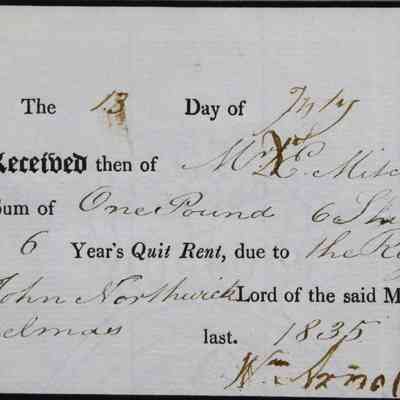 The 13 Day of July
Received then of Mr P. Mitc
Sum of One Pound 6 Sh
6 Year's Quit Rent, due to the R
John Northwick Lord of the said M
elmas last. 1835
Wm Arno